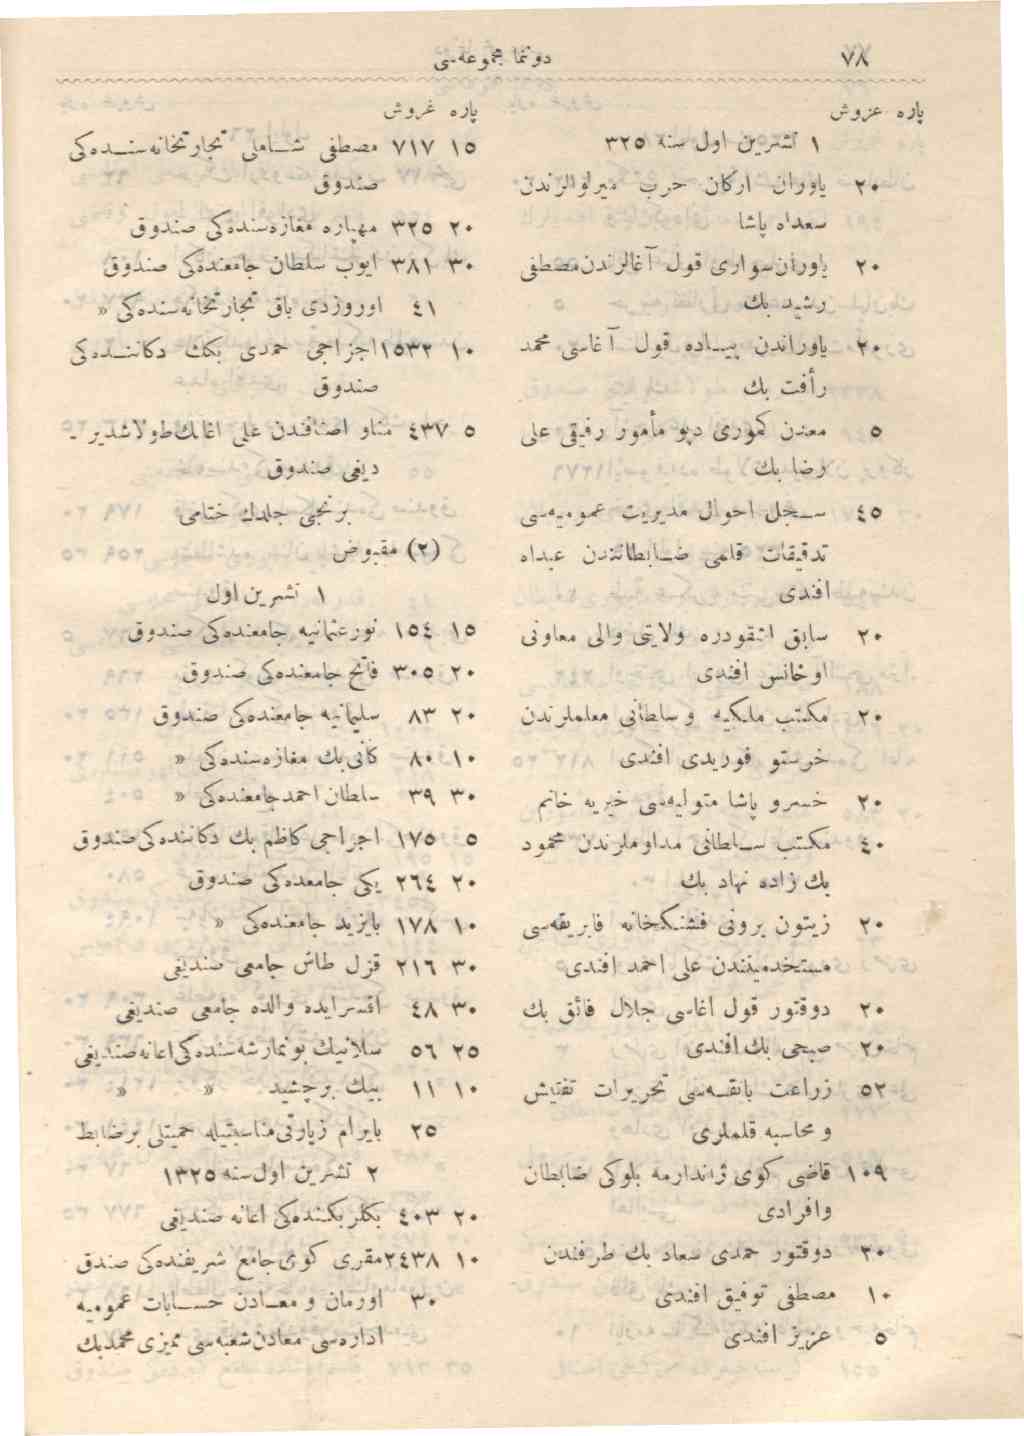 ٧٨
دوننما مجموعه‌سی
پاره غروش
١ تشرین اول سنه ٣٢٥
٢٠ یاوران ارکان حرب میرلوالرندن
سعداه پاشا
٢٠ یاوران سواری قول آغالرندن مصطفی
رشید بك
٢٠ یاوراندن پیاده قول آغاسی محمد
رأفت بك
٥ معدن کموری دپو مأمور رفیقی علی
رضا بك
٤٥ سجل احوال مدیریت عمومیه‌سی
تدقیقات قلمی ضابطانندن عبداه
افندی
٢٠ سابق اشقودره ولایتی والی معاونی
اوخانس افندی
٢٠ مکتب ملکیه و سلطانی معلملرندن
خرستو فوریدی افندی
٢٠ خسرو پاشا متولیه‌سی خیریه خانم
٤٠ مکتب سلطانی مداوملرندن محمود
بك زاده نهاد بك
٢٠ زیتون برونی فشنکخانه فابریقه‌سی
مستخدمیندن علی احمد افندی
٢٠ دوقتور قول اغاسی جلال فائق بك
٢٠ صبحی بك افندی
٥٢ زراعت بانقه‌سی تحریرات تفتیش
و محاسبه قلملری
١٠٩ قاضی کوی ژاندارمه بلوکی ضابطان
وافرادی
٢٠ دوقتور حمدی سعاد بك طرفندن
١٠ مصطفی توفیق افندی
٥ عزیز افندی
پاره غروش
١٥ ٧١٧ مصطفی شاملی تجارتخانه‌سنده‌کی
صندوق
٢٠ ٣٢٥ مهپاره مغازه‌سنده‌کی صندوق
٣٠ ٣٨١ ایوب سلطان جامعنده‌کی صندوق
٤١ اوروزدی باق تجارتخانه‌سنده‌کی »
١٠ ١٥٣٢ اجزاجی حمدی بکك دکاننده‌کی
صندوق
٥ ٤٣٧ مناو اصنافندن علی اغانك طولاشدیر ـ
دیغی صندوق
برنجی جلدك ختامی
(٢) مقبوض
١ تشرین اول
١٥ ١٥٤ نورعثمانیه جامعنده‌کی صندوق
٢٠ ٣٠٥ فاتح جامعنده‌کی صندوق
٢٠ ٨٣ سلیمانیه جامعنده‌کی صندوق
١٠ ٨٠ کانی بك مغازه‌سنده‌کی »
٣٠ ٣٩ سلطان احمد جامعنده‌کی »
٥ ١٧٥ اجزاجی کاظم بك دکاننده‌کی صندوق
٢٠ ٢٦٤ یکی جامعده‌کی صندوق
١٠ ١٧٨ بایزید جامعنده‌کی »
٣٠ ٢١٦ قزل طاش جامعی صندیغی
٣٠ ٤٨ اقسرایده والده جامعی صندیغی
٢٥ ٥٦ سلانیك بونمارشه‌سنده‌کی اعانه صندیغی
١٠ ١١ بیك برچشید » »
٢٥ بایرام زیارتی مناسبتیله حمیتلی برضابط
٢ تشرین اول سنه ١٣٢٥
٢٠ ٤٠٣ بکلربکنده‌کی اعانه صندیغی
١٠ ٢٤٣٨ مقری کوی جامع شریفنده‌کی صندق
٣٠ اورمان و معادن حسابات عمومیه
اداره‌سی معادن شعبه‌سی ممیزی محمد بك